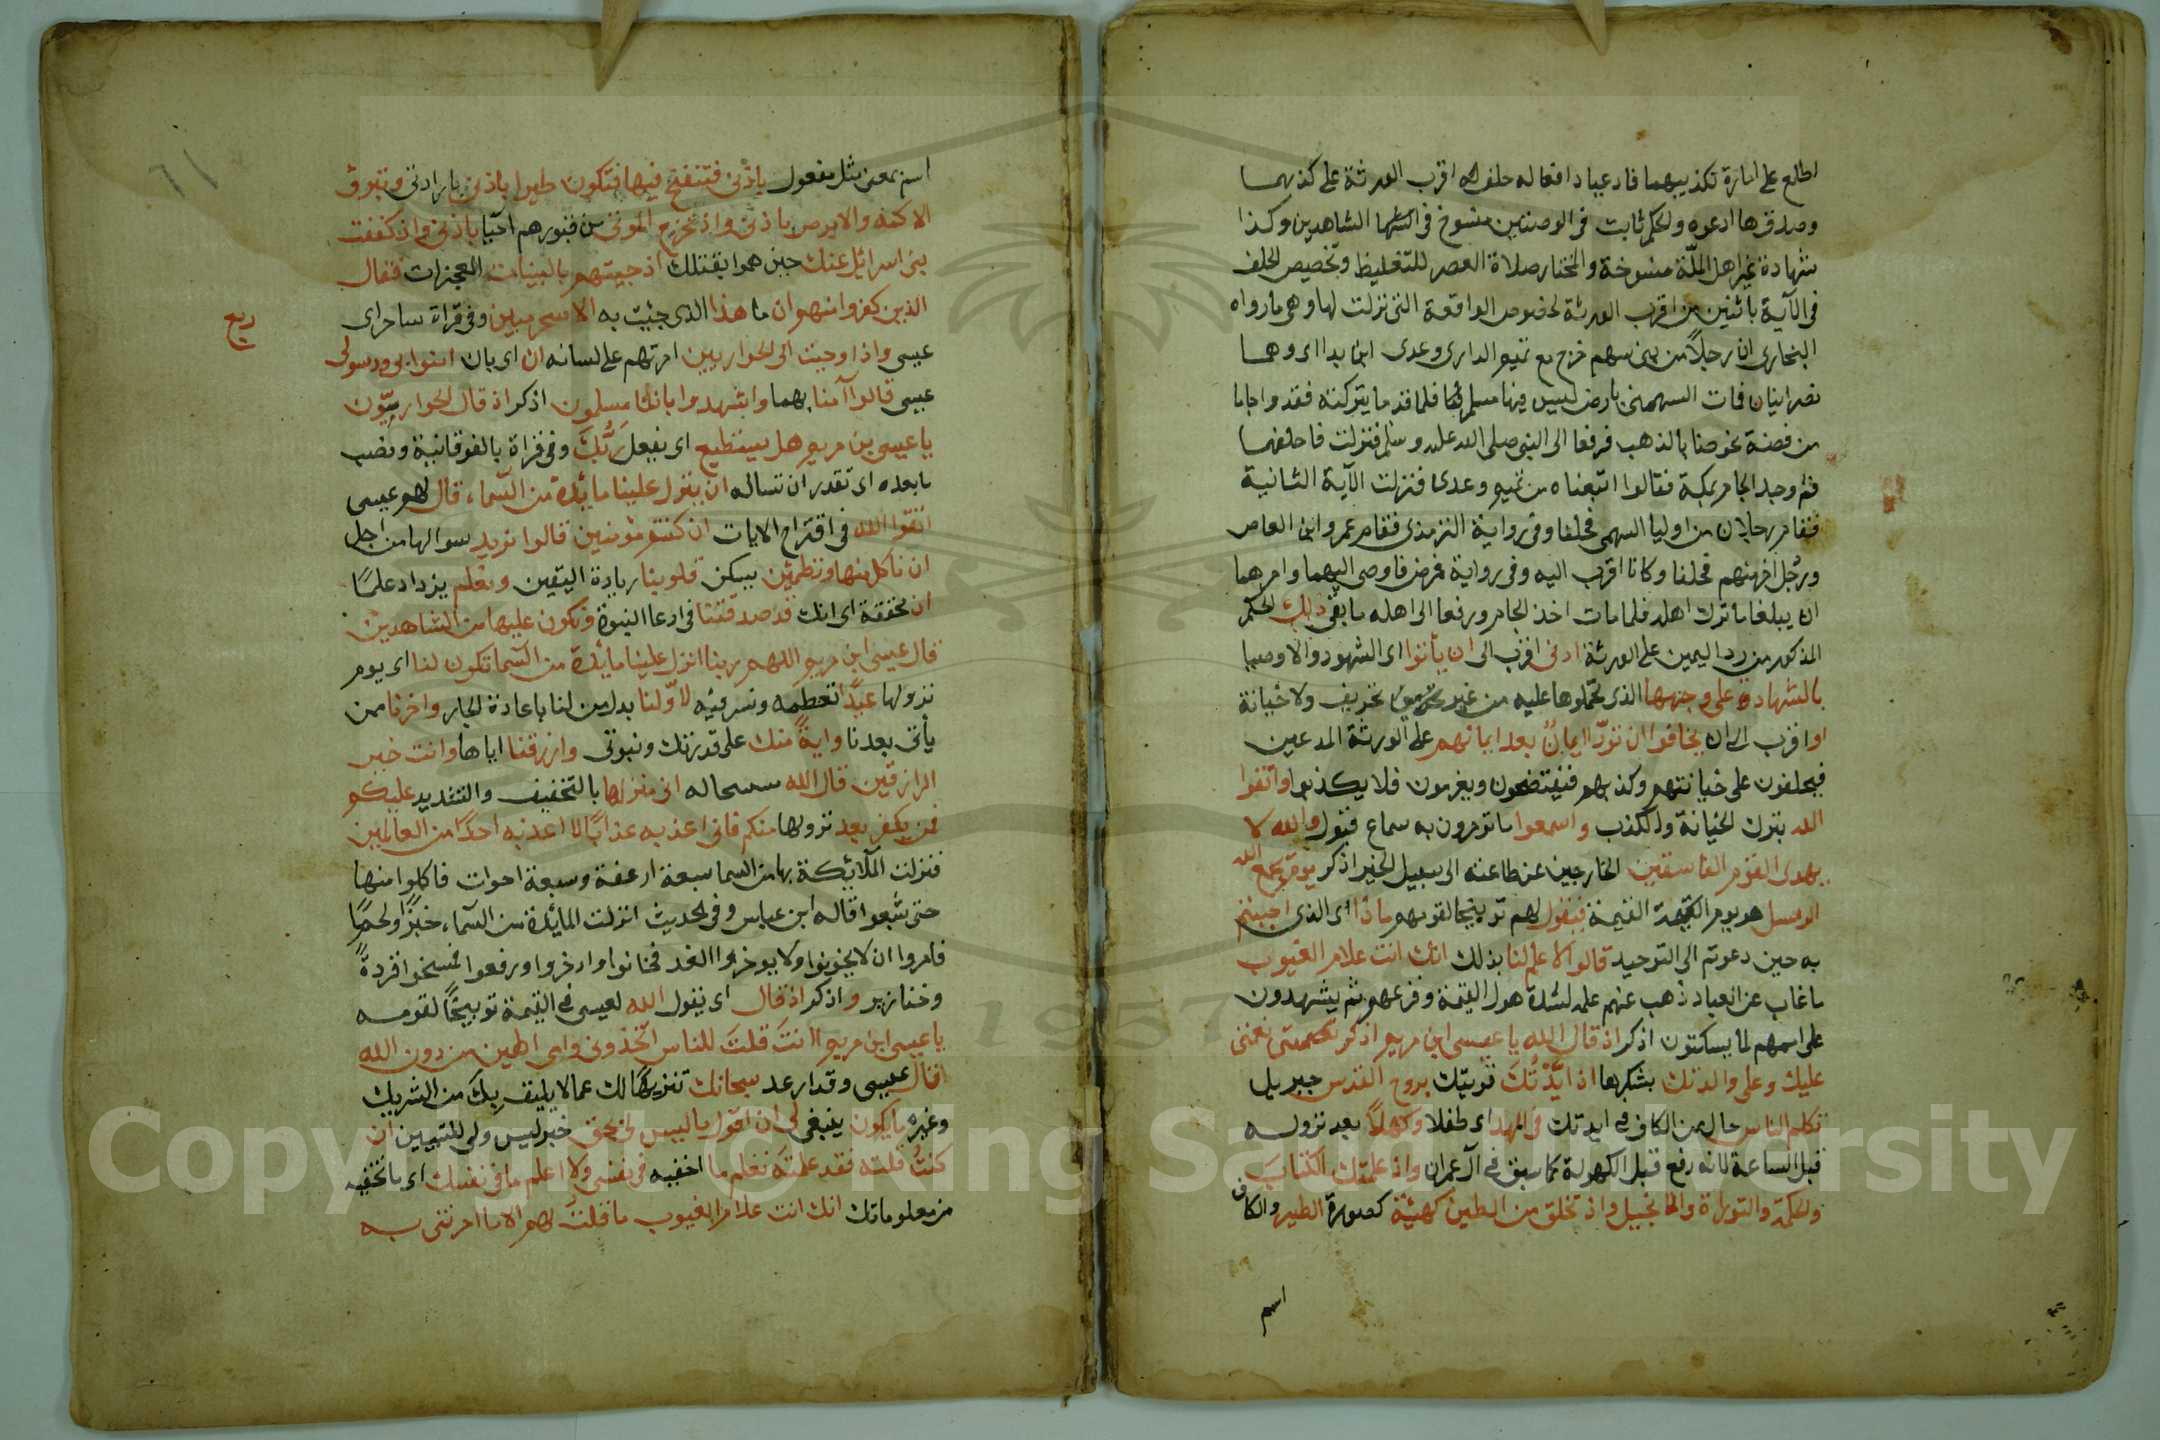 اطلع على امارة تكذيبهما فادعيا دافعا له حلف اقرب الورثة على كذبهما
وصدق ما ادعوه والحكم ثابت فى الوصيين منسوخ فى الشاهدين وكذا
شهادة غير اهل الملّة منسوخة والختار صلاة العصر للتغليظ وتخصيص الحلف
فى الآية باثنين من اقرب الورثة لخصوص الواقعة التى نزلت لها وهى ما رواه
البخارى ان رجلاً من بنى سهم خرج مع تميم الدارى وعدى ابن بداء وهما
نصرانيان فمات السهمى بارض ليس فيها مسلم فلما قدما بتركته فقدوا جاما
من فضة مخوصا بالذهب فرفعا الى النبى صلى الله عليه وسلم فنزلت فاحلفهما
ثم وجد الجام بمكة فقالوا ابتعناه من تميم وعدى فنزلت الآية الثانية
فقام رجلان من اوليا السهمى فحلفا وفى رواية الترمذى فقام عمرو ابن العاص
ورجل اخر منهم فحلفا وكانا اقرب اليه وفى رواية فمرض فاوصى اليهما وامرهما
ان يبلغا ما ترك اهله فلما مات اخذ الجام ورفعا الى اهله ما بقى ذلك الحكم
المذكور من رد اليمين على الورثة ادنى اقرب الى ان يأتوا اى الشهود والاوصيا
بالشهادة على وجهها الذى تحملوها عليه من غير تحريف ولا خيانة
او اقرب الى ان يخافوا ان تردّ ايمانٌ بعد ايمانهم على الورثة المدعين
فيحلفون على خيانتهم وكذبهم فيفتضحون ويغرمون فلا يكذبوا واتقوا
الله بترك الخيانة والكذب واسمعوا ما تؤمرون به سماع قبول والله لا
يهدى القوم الفاسقين الخارجين عن طاعته الى سبيل الخير اذكر يوم يجمع الله
الرسل هو يوم القيمة فيقول لهم توبيخا لقومهم ماذا اى الذى اجبتم
به حين دعوتم الى التوحيد قالوا لا علم لنا بذلك انك انت علام الغيوب
ما غاب عن العباد ذهب عنهم علمه لشدة هول القيمة وفزعهم ثم يشهدون
على اممهم لما يسكتون اذكر اذ قال الله يا عيسى ابن مريم اذكر نعمتى
عليك وعلى والدتك بشكرها اذ ايّدْتُكَ قويتك بروح القدس جبريل
تكلم الناس حال من الكاف فى ايدتك فى المهد اى طفلا وكهلاً بعد نزوله
قبل الساعة لانه رفع قبل الكهولة كما سبق فى آل عمران واذ علمتك الكتابَ
والحكمة والتوراة والانجيل واذ تخلق من الطين كهيئة كصورة الطير والكاف
اسم
اسم بمعنى مثل مفعول باذنى فتنفخ فيها فتكون طيرا باذنى بارادتى وتبرئ
الاكمه والابرص باذنى واذ تخرج الموتى من قبورهم احيا باذنى واذ كففت
بنى اسرائيل عنك حين هموا بقتلك اذ جيتهم بالبينات المعجزات فقال
الذين كفروا منهم ان ما هذا الذى جئت به الا سحر مبين وفى قراة ساحر اى
ربع
عيسى واذ اوحيت الى الحواريين امرتهم على لسانه ان اى بان امنوا بى وبرسولى
عيسى قالوا آمنا بهما واشهد وا باننا مسلمون اذكر اذ قال الحواريّون
يا عيسى بن مريم هل يستطيع اى يفعل رَبُّكَ وفى قراة بالفوقانية ونصب
ما بعده اى تقدر ان تساله ان ينزل علينا مائدة من السّماء قال لهم عيسى
اتقوا الله فى اقتراح الايات ان كنتم مؤمنين قالوا نريد سوالها من اجل
ان ناكل منها وتطمئن يسكن قلوبنا بزيادة اليقين ونعلم يزداد علمًا
ان مخففة اى انك قد صدقتنا فى ادعا النبوة ونكون عليها من الشاهدين
قال عيسى ابن مريم اللهم ربنا انزل علينا مائدة من السّما تكون لنا اى يوم
نزولها عيدًا نعظمه ونشرفه لاوّلنا بدل من لنا باعادة الجار واخرنا ممن
يأتى بعدنا وايةً منك على قدرتك ونبوتى وارزقنا اياها وانت خير
الرازقين قال الله سبحانه انى منزلها بالتخفيف والتشديد عليكم
فمن يكفر بعد نزولها منكم فانى اعذبه عذابًا لا اعذبه احدًا من العالمين
فنزلت الملائكة بها من السما سبعة ارغفة وسبعة احوات فاكلوا منها
حتى شبعوا قاله ابن عباس وفى الحديث انزلت المائدة من السّماء خبزًا ولحمًا
فامروا ان لا يخونوا ولا يدخروا لغد فخانوا وادخروا ورفعوا فمسخوا قردةً
وخنازير واذكر اذ قال اى يقول الله لعيسى فى القيمة توبيخًا لقومه
يا عيسى ابن مريم اانتَ قلتَ للناس اتخذونى وامى الهين من دون الله
قال عيسى وقد ارعد سبحانك تنزيها لك عما لا يليق بِكَ من الشريك
وغيره ما يكون ينبغى لى ان اقول ما ليس لى بحق خبر ليس ولى للتبيين ان
كنتُ قلته فقد علمته تعلم ما اخفيه فى نفسى ولا اعلم ما فى نفسك اى ما تخفيه
من معلوماتك انك انت علام الغيوب ما قلتُ لهم الا ما امرتنى به
1957
Copyright © King Saud University